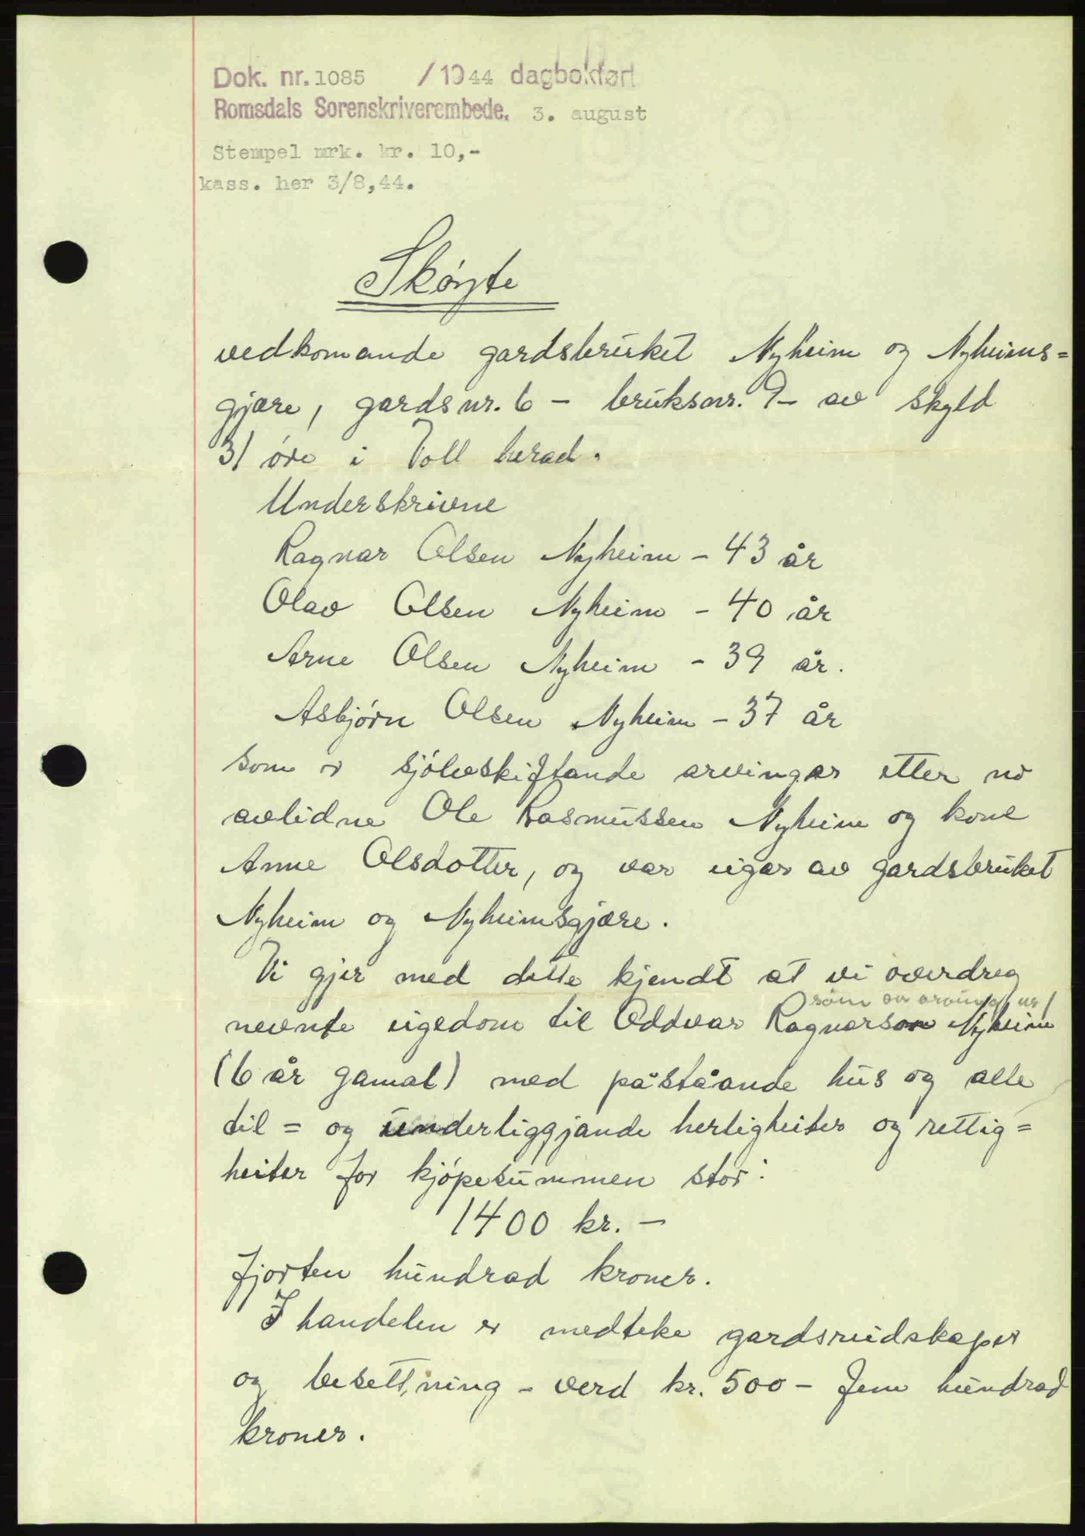 Dok. nr. 1085 / 1944 dagbokført
Romsdals Sorenskriverembede. 3. august
Stempel mrk. kr. 10,-
kass. her 3/8,44.
Skøyte
vedkomande gardsbruket Nyheim og Nyheims=
gjære, gardsnr. 6 - bruksnr. 9- av skyld
31 øre i Voll herad.
Underskrivne
Ragnar Olsen Nyheim - 43 år
Olav Olsen Nyheim - 40 år
Arne Olsen Nyheim - 39 år.
Asbjørn Olsen Nyheim - 37 år
som er sjølvskiftande arvingar etter no
avlidne Ole Rasmussen Nyheim og kone
Anne Olsdotter, og var eigar av gardsbruket
Nyheim og Nyheimsgjære.
Vi gjer med dette kjendt at vi overdreg
som er arving
nevnte eigedom til Oddvar Ragnarson Nyheim
(6 år gamal) med påståande hus og alle
til = og underliggjande herligheiter og rettig=
heiter for kjøpesummen stor:
1400 kr. -
fjorten hundrad kroner.
I handelen er medteke gardsreidskaper
og besettning - verd kr. 500 - fem hundrad
kroner.